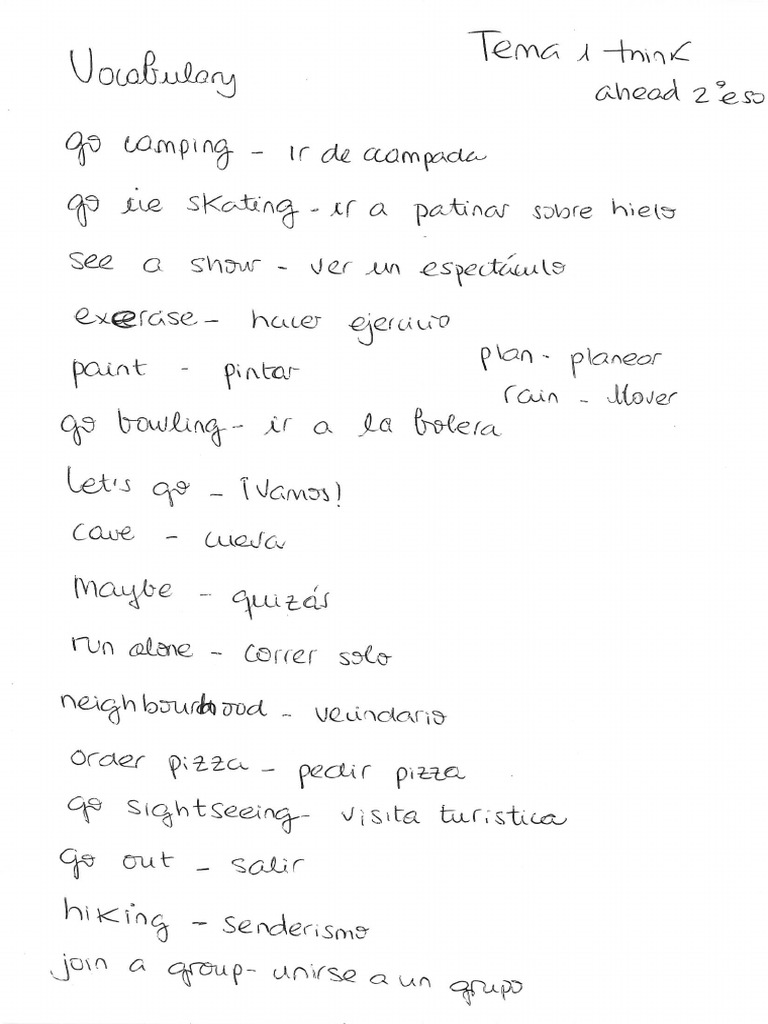 Vocabulary
Tema 1 think
ahead 2º eso
go camping - ir de acampada
go ice skating - ir a patinar sobre hielo
see a show - ver un espectáculo
exercise - hacer ejercicio
paint - pintar
plan - planear
rain - llover
go bowling - ir a la bolera
let's go - ¡Vamos!
cave - cueva
maybe - quizás
run alone - correr solo
neighbourhood - vecindario
order pizza - pedir pizza
go sightseeing - visita turistica
go out - salir
hiking - senderismo
join a group - unirse a un grupo